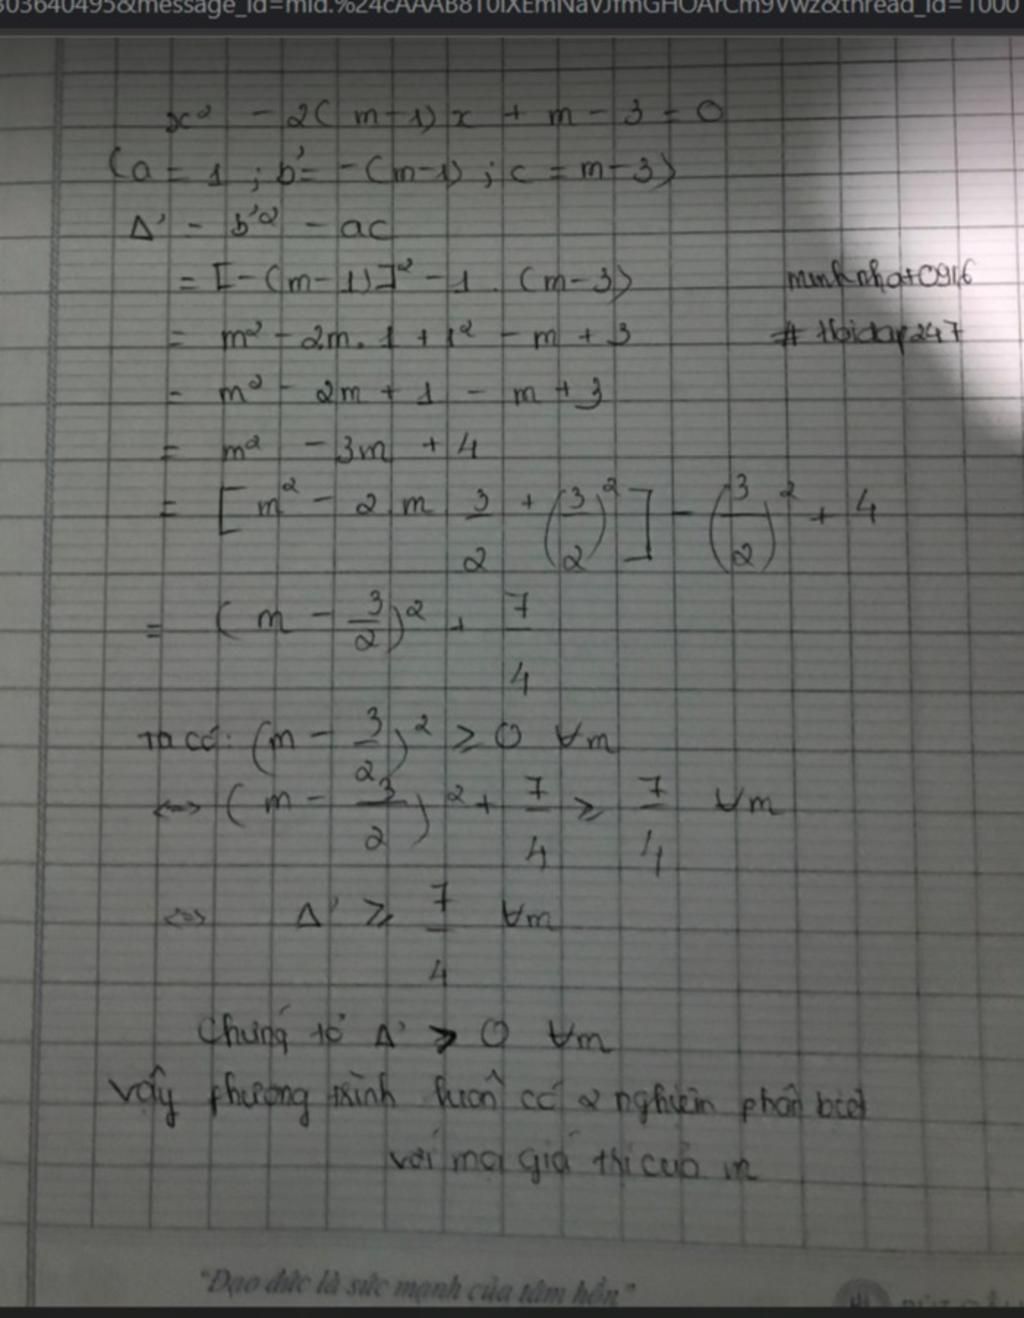 303640495&message_id=mid.%24cAAAB8T0IXEmNaVJfmGHOArCm9Vwz&thread_id=1000
x² - 2(m-1)x + m - 3 = 0
(a = 1 ; b' = -(m-1) ; c = m-3)
Δ' = b'² - ac
= [-(m-1)]² - 1 . (m-3)
minhnhat0916
= m² - 2m.1 + 1² - m + 3
# Hoidap247
= m² - 2m + 1 - m + 3
= m² - 3m + 4
= [m² - 2 m 3/2 + (3/2)²] - (3/2)² + 4
= (m - 3/2)² + 7/4
Ta có: (m - 3/2)² ≥ 0 ∀m
<=> (m - 3/2)² + 7/4 ≥ 7/4 ∀m
<=> Δ' ≥ 7/4 ∀m
Chứng tỏ Δ' > 0 ∀m
Vậy phương trình luôn có 2 nghiệm phân biệt
với mọi giá trị của m
"Đạo đức là sức mạnh của tâm hồn"